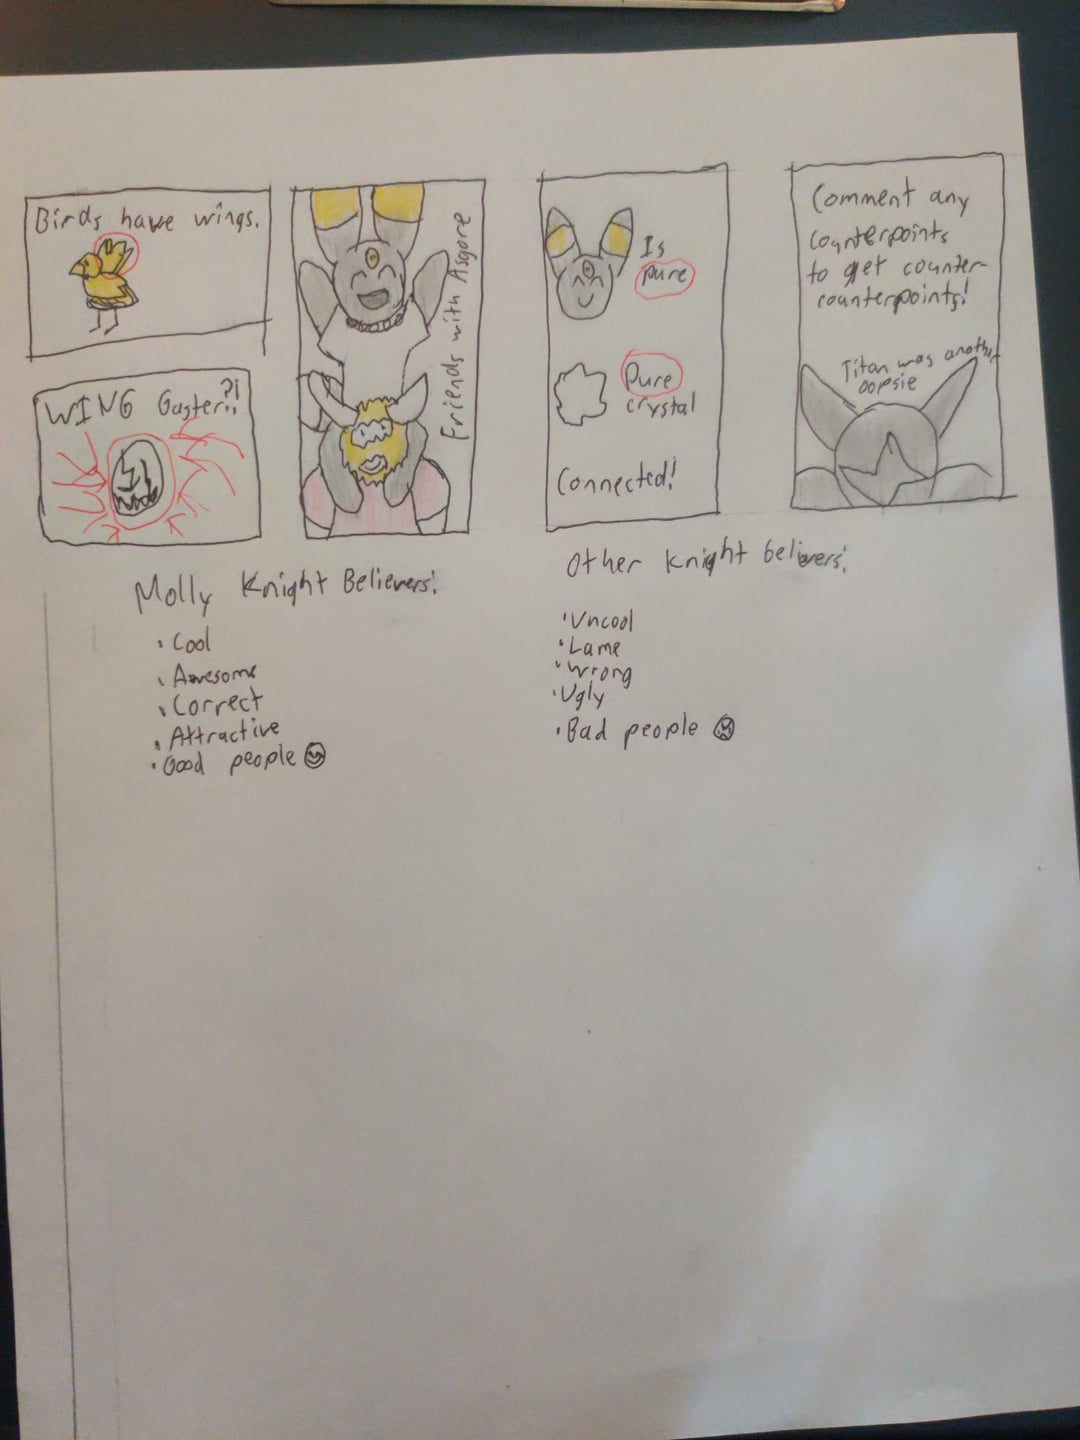 Birds have wings.
WING Gaster?!
Friends with Asgore
Is
pure
Pure
crystal
Connected!
Comment any
counterpoints
to get counter-
counterpoints!
Titan was another
oopsie
Molly Knight Believers:
• Cool
• Awesome
• Correct
• Attractive
• Good people
Other Knight believers:
• Uncool
• Lame
• Wrong
• Ugly
• Bad people